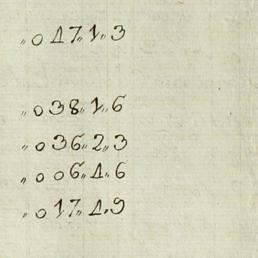 „ 047„ 1„ 3
„ 038„ 1„ 6
„ 036„ 2„ 3
„ 006„ 4„ 6
„ 017„ 4„ 9